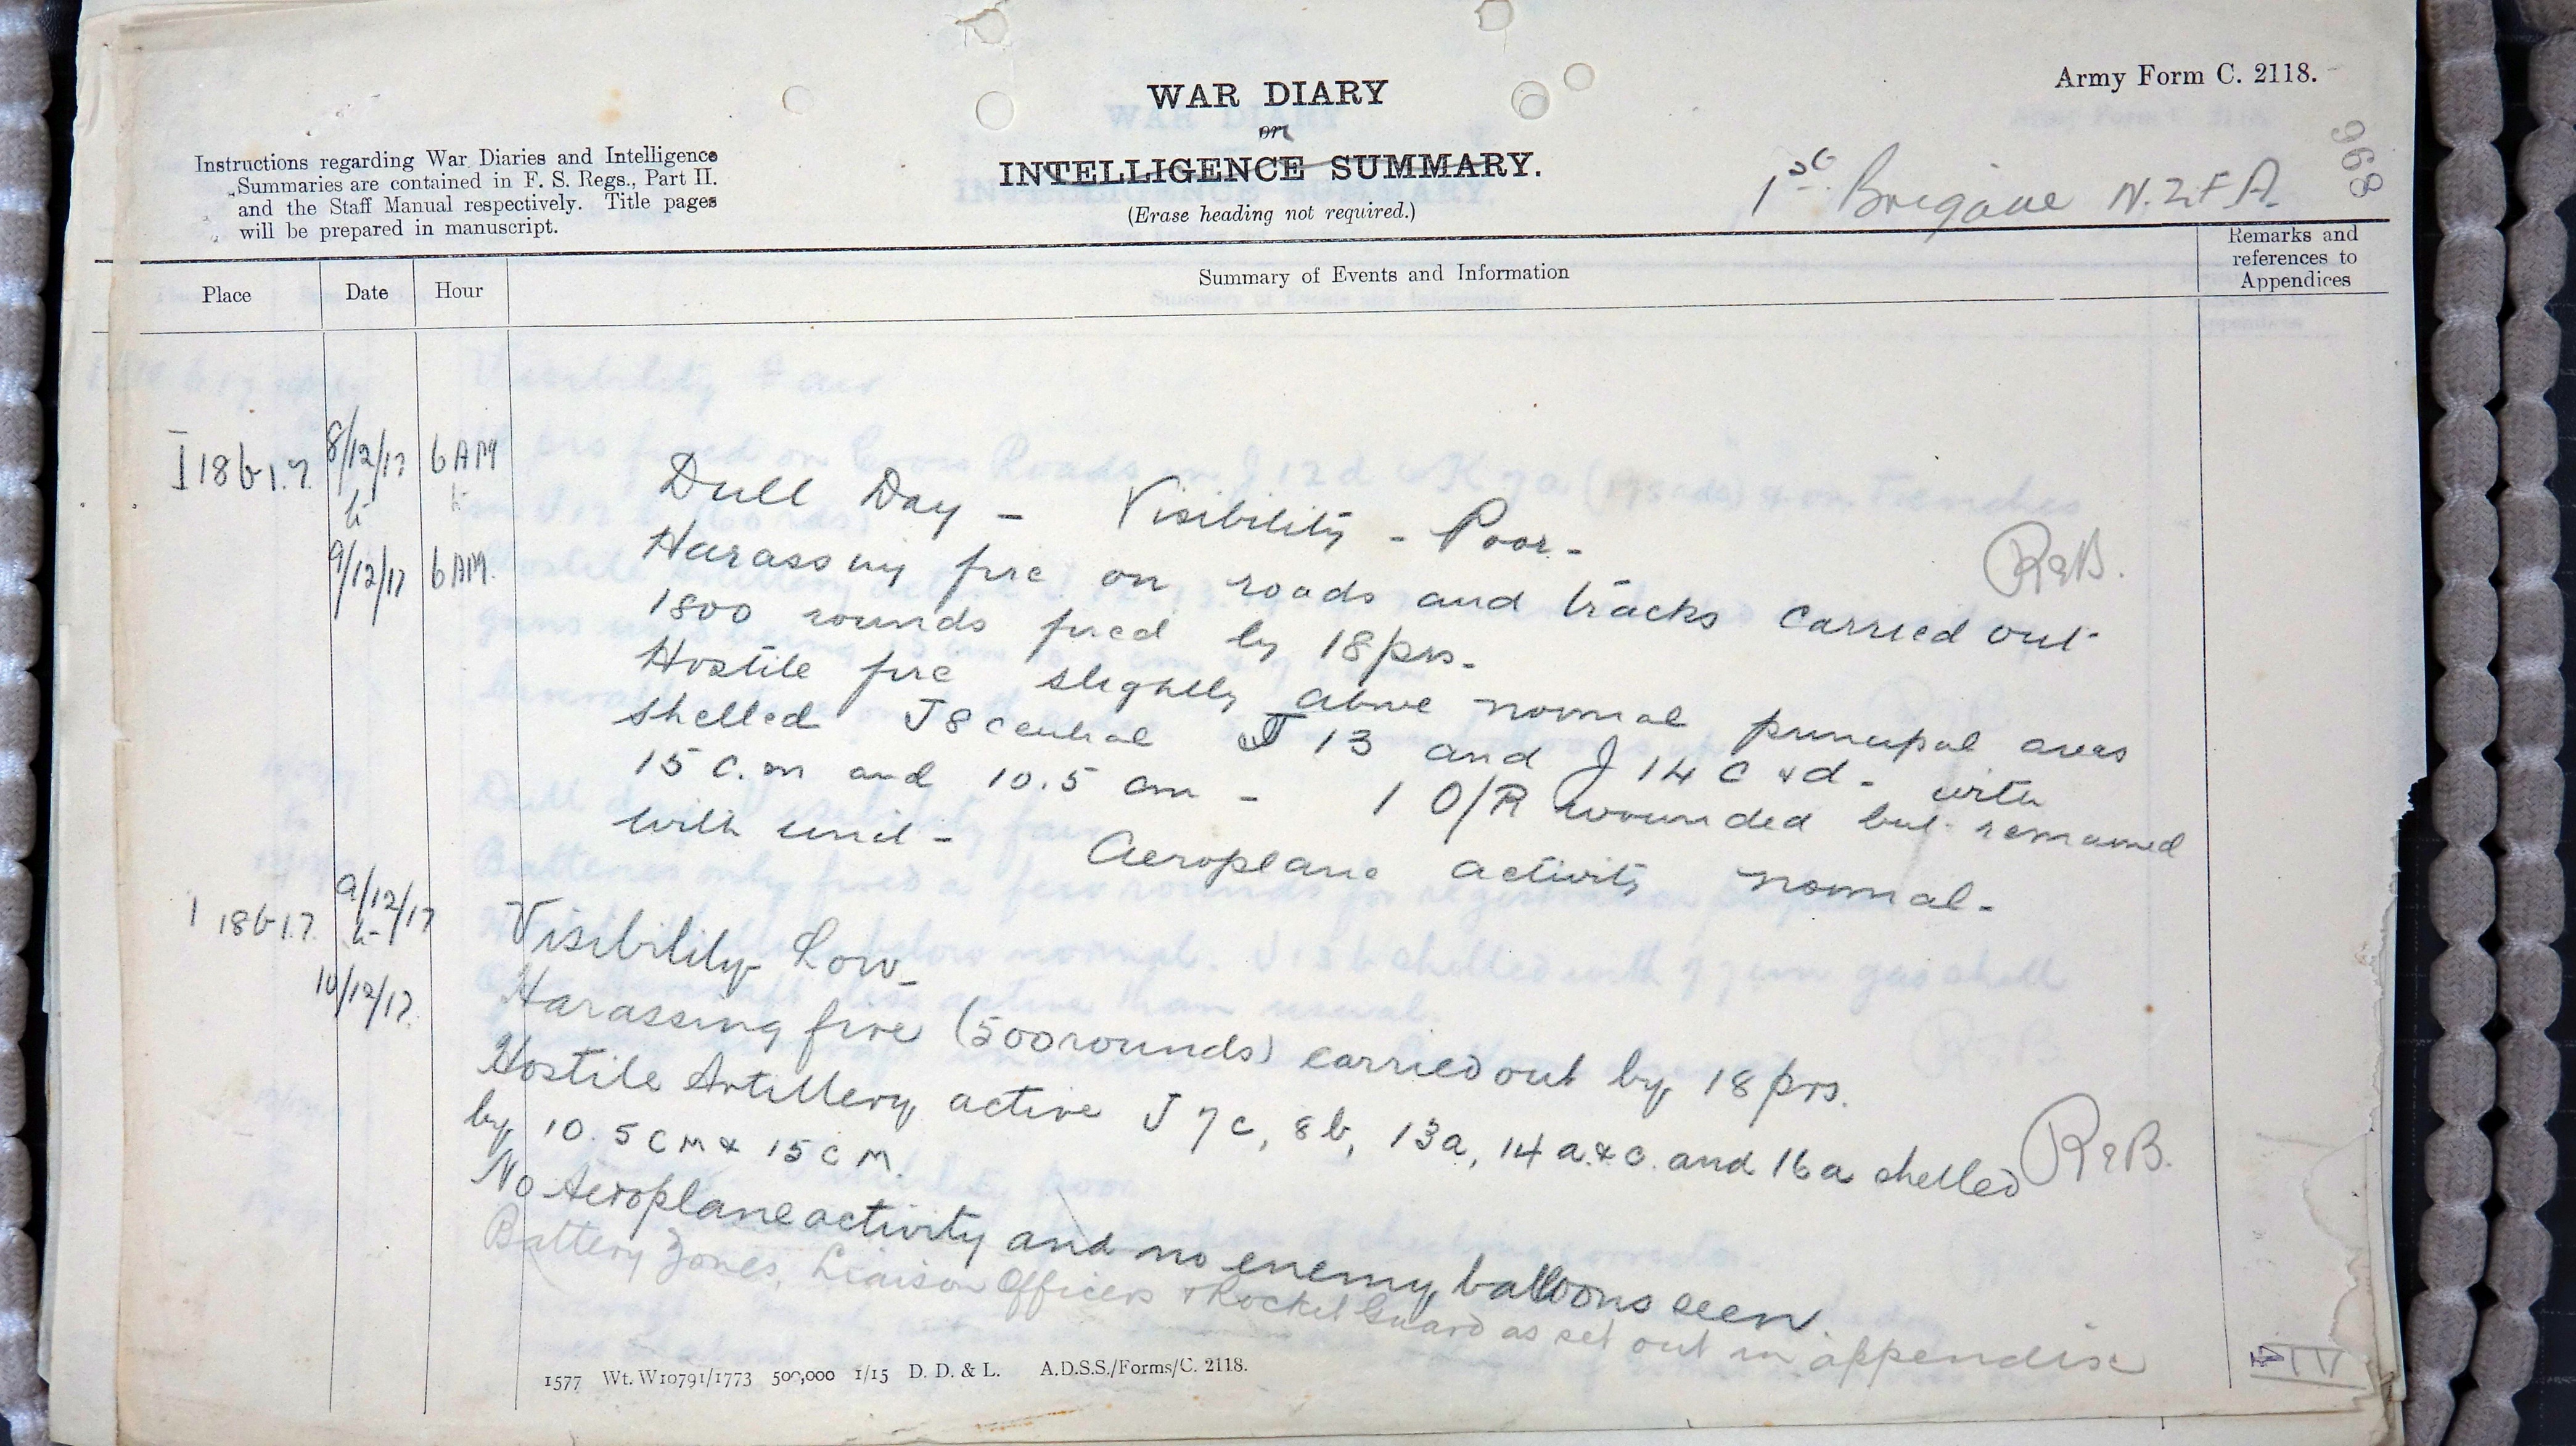 Army Form C. 2118.
WAR DIARY
or
INTELLIGENCE SUMMARY.
(Erase heading not required.)
Instructions regarding War Diaries and Intelligence
Summaries are contained in F. S. Regs., Part II.
and the Staff Manual respectively. Title pages
will be prepared in manuscript.
1st Brigade N.Z.F.A.
968
Place Date Hour Summary of Events and Information Remarks and
references to
Appendices
I 18 b 1.7. 8/12/17 6 AM Dull Day - Visibility - Poor -
to to
9/12/17 6 AM. Harassing fire on roads and tracks carried out
1800 rounds fired by 18 prs -
Hostile fire slightly above normal principal areas
shelled J 8 central J 13 and J 14 c & d - with
15 c.m and 10.5 cm - 1 O/R wounded but remained
with unit - Aeroplane activity normal -
I 18 b 1.7. 9/12/17 Visibility - Low -
to
10/12/17. Harassing fire (500 rounds) carried out by 18 prs.
Hostile Artillery active J 7c, 8b, 13a, 14 a & c. and 16a shelled
by 10.5 CM & 15 CM.
No Aeroplane activity and no enemy balloons seen.
Battery Zones, Liaison Officers & Rocket Guard as set out in appendix
IV
1577 Wt. W10791/1773 500,000 1/15 D. D. & L. A.D.S.S./Forms/C. 2118.